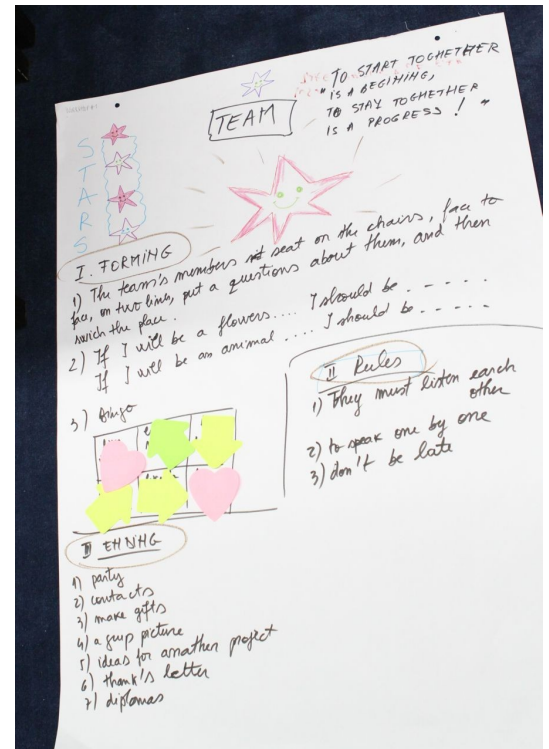 TEAM
"TO START TOGHETHER
IS A BEGINING,
TO STAY TOGHETHER
IS A PROGRESS ! "
STARS
I. FORMING
1) The team's members seat on the chairs, face to
face, on two lines, put a questions about them, and then
swich the place.
2) If I will be a flowers.... I should be - - - - -
If I will be an animal .... I should be - - - - -
3) Bingo
II Rules
1) They must listen earch
other
2) to speak one by one
3) don't be late
III ENDING
1) party
2) contacts
3) make gifts
4) a grup picture
5) ideas for anather project
6) thank's letter
7) diplomas